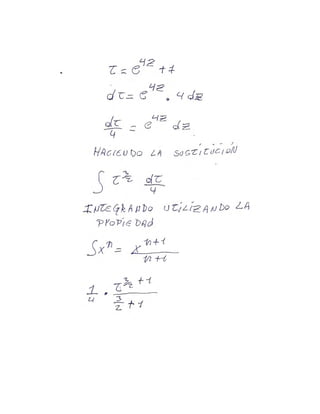 τ = e^{4z} + 1
dτ = e^{4z} . 4 dz
dτ/4 = e^{4z} dz
HACIENDO LA SUSTITUCIÓN
∫ τ^{3/2} dτ/4
INTEGRANDO UTILIZANDO LA
PROPIEDAD
∫x^n = x^{n+1}/n+1
1/4 . τ^{3/2 + 1}/(3/2 + 1)